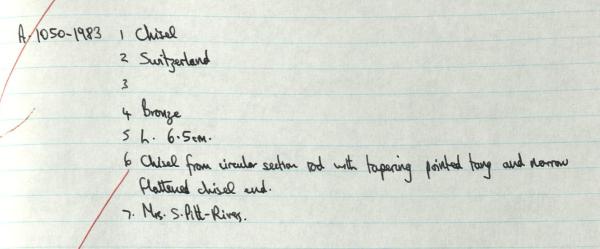 A.1050-1983 1 Chisel
2 Switzerland
3
4 Bronze
5 L. 6.5cm.
6 Chisel from circular section rod with tapering pointed tang and narrow
flattened chisel end.
7. Mrs. S. Pitt-Rivers.